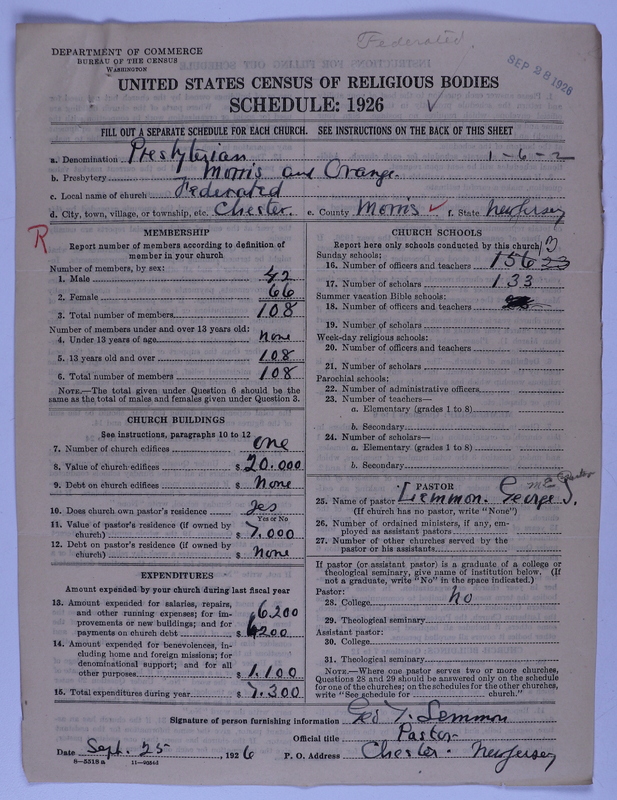 Federated.
DEPARTMENT OF COMMERCE
BUREAU OF THE CENSUS
WASHINGTON
SEP 28 1926
UNITED STATES CENSUS OF RELIGIOUS BODIES
SCHEDULE: 1926
FILL OUT A SEPARATE SCHEDULE FOR EACH CHURCH. SEE INSTRUCTIONS ON THE BACK OF THIS SHEET
a. Denomination Presbyterian 1-6-2
b. Presbytery Morris and Orange.
c. Local name of church Federated
d. City, town, village, or township, etc. Chester. e. County Morris f. State New Jersey
R
MEMBERSHIP
Report number of members according to definition of
member in your church
Number of members, by sex:
1. Male 42
2. Female 66
3. Total number of members 108
Number of members under and over 13 years old:
4. Under 13 years of age None
5. 13 years old and over 108
6. Total number of members 108
NOTE.—The total given under Question 6 should be the
same as the total of males and females given under Question 3.
CHURCH BUILDINGS
See instructions, paragraphs 10 to 12
7. Number of church edifices One
8. Value of church edifices $ 20.000
9. Debt on church edifices $ None
10. Does church own pastor's residence Yes
Yes or No
11. Value of pastor's residence (if owned by
church) $ 7.000
12. Debt on pastor's residence (if owned by
church) $ None
EXPENDITURES
Amount expended by your church during last fiscal year
13. Amount expended for salaries, repairs,
and other running expenses; for im-
provements or new buildings; and for
payments on church debt $ 6200
6200
14. Amount expended for benevolences, in-
cluding home and foreign missions; for
denominational support; and for all
other purposes $ 1.100
15. Total expenditures during year $ 7.300
CHURCH SCHOOLS
Report here only schools conducted by this church
Sunday schools:
16. Number of officers and teachers 156 23
17. Number of scholars 133
Summer vacation Bible schools:
18. Number of officers and teachers
19. Number of scholars
Week-day religious schools:
20. Number of officers and teachers
21. Number of scholars
Parochial schools:
22. Number of administrative officers
23. Number of teachers—
a. Elementary (grades 1 to 8)
b. Secondary
24. Number of scholars—
a. Elementary (grades 1 to 8)
b. Secondary
PASTOR
M E Pastor
25. Name of pastor Lemmon. George T.
(If church has no pastor, write "None")
26. Number of ordained ministers, if any, em-
ployed as assistant pastors
27. Number of other churches served by the
pastor or his assistants
If pastor (or assistant pastor) is a graduate of a college or
theological seminary, give name of institution below. (If
not a graduate, write "No" in the space indicated.)
Pastor:
28. College No
29. Theological seminary
Assistant pastor:
30. College
31. Theological seminary
NOTE.—Where one pastor serves two or more churches,
Questions 28 and 29 should be answered only on the schedule
for one of the churches; on the schedules for the other churches,
write "See schedule for church."
Signature of person furnishing information Geo T. Lemmon
Official title Pastor
Date Sept. 25, 1926 P. O. Address Chester. New Jersey
8—5518 a